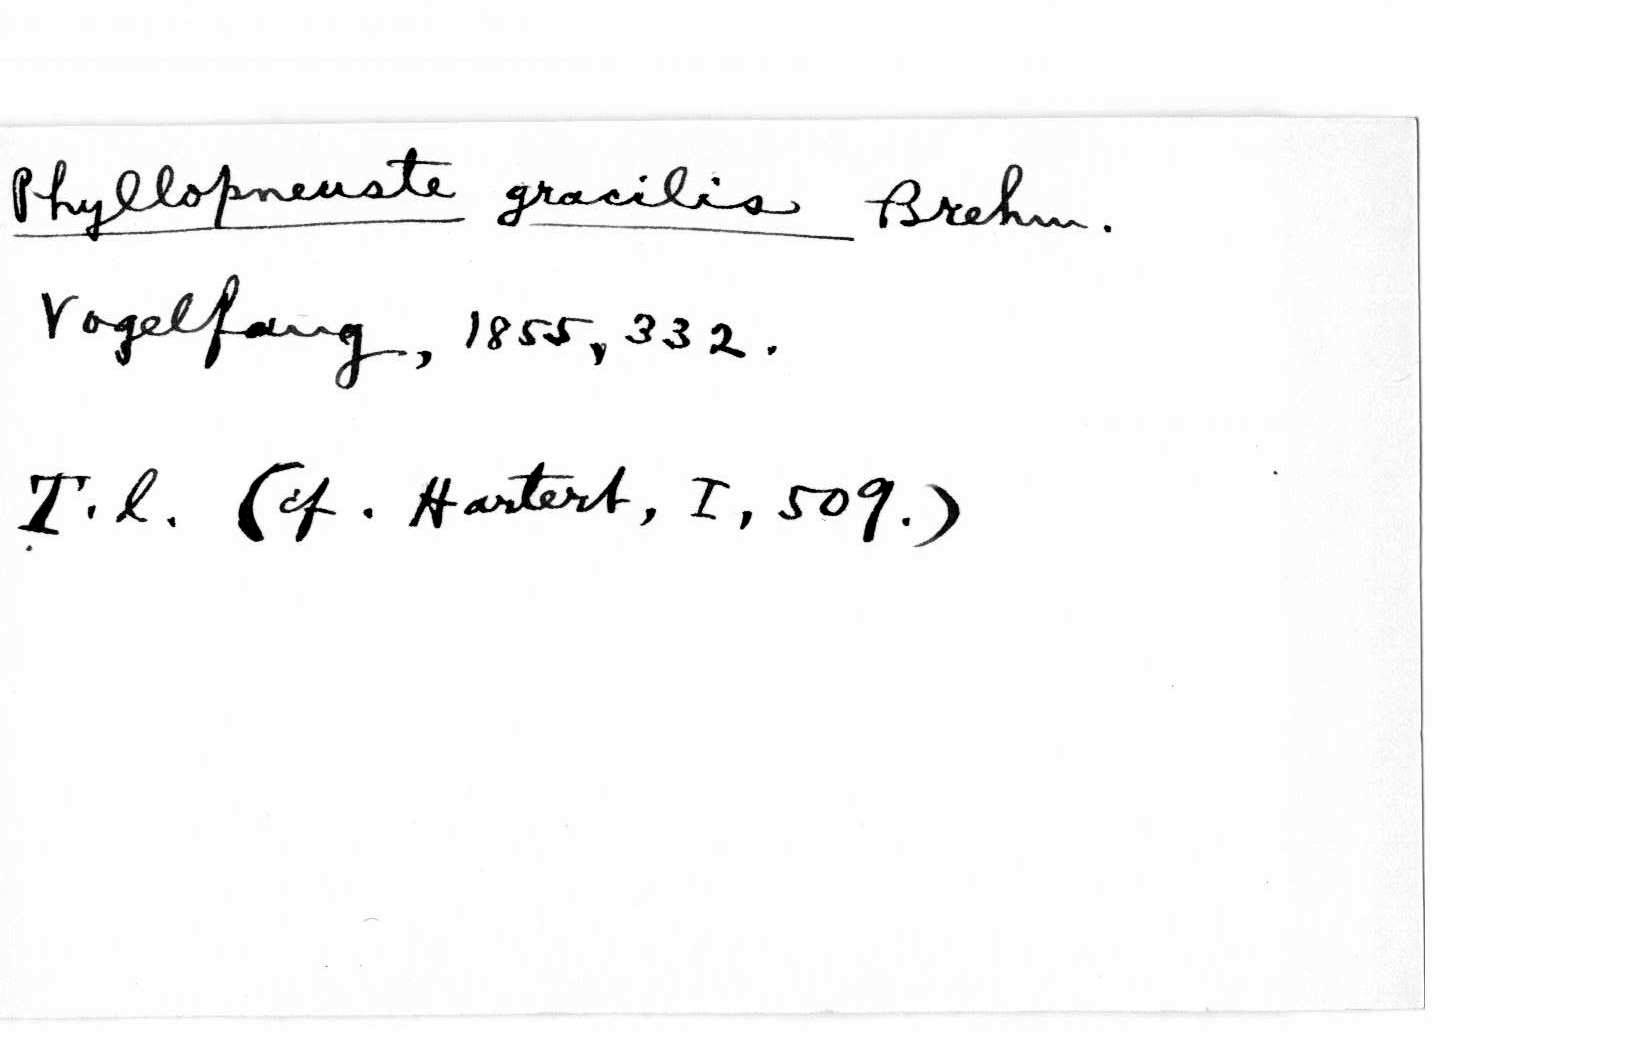 Phyllopneuste gracilis Brehm.
Vogelfang, 1855, 332.
T. l. (cf. Hartert, I, 509.)